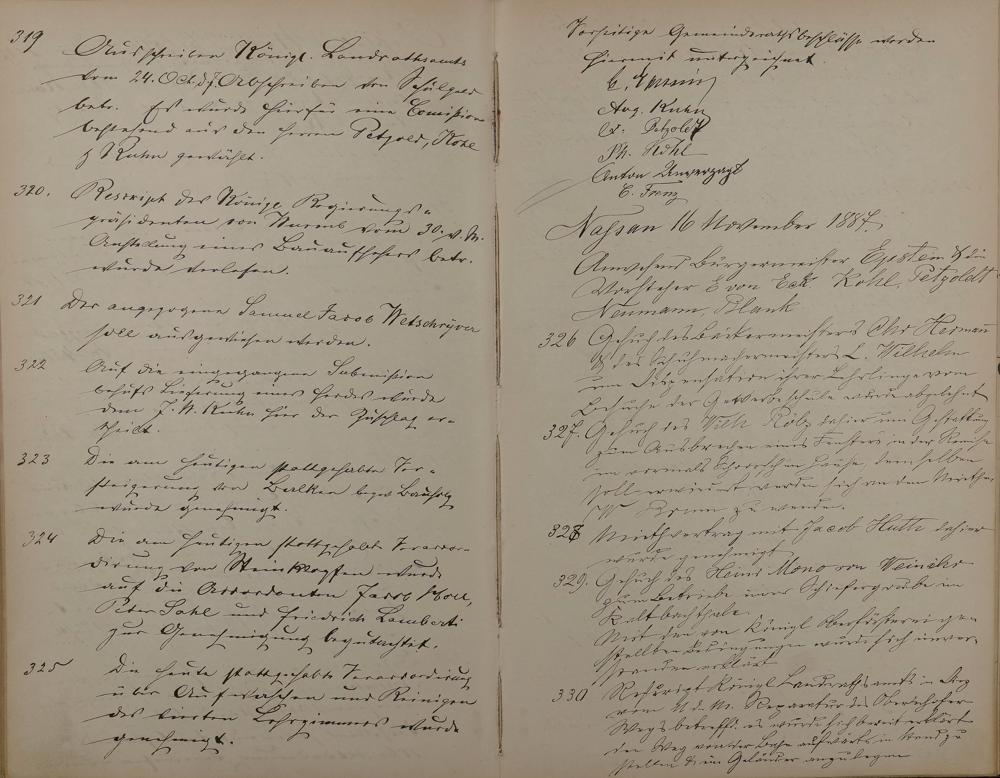 319
Ausschreiben Königl. Landrathsamts
vom 24. Oct. d. J. Abschreiben von Schulgeld
betr. Es wurde hierfür eine Comission
bestehend aus den Herren Petzold, Kohl
& Kuhn gewählt.
320. Rescript des Königl. Regierungs-
präsidenten von Wurmb vom 30. v. M.
Anstellung eines Bauaufsehers betr.
wurde verlesen.
321 Der angezogene Samuel Jacob Wetschryver
soll ausgewiesen werden.
322 Auf die eingegangene Submission
behufs Lieferung eines Herdes wurde
dem J. W. Kuhn hier der Zuschlag er-
theilt.
323 Die am heutigen stattgehabte Ver-
steigerung von Balken bezw Bauholz
wurde genehmigt.
324 Die am heutigen stattgehabte Veraccor-
dirung von Steinklopfen wurde
auf die Accordanten Jacob
Peter Sahl und Friedrich Lamberti
zur Genehmigung begutachtet.
325 Die heute stattgehabte Veraccordirung
über Aufwaschen und Reinigen
des vierten Lehrzimmers wurde
genehmigt.
Vorseitige Gemeinderathsbeschlüsse werden
hiermit unterzeichnet.
Aug. Kuhn
Petzoldt
Ph. Kohl
Anton Unverzagt
Nassau 16 November 1887.
Anwesend Bürgermeister Epstein & die
Vorsteher E von Eck Kohl, Petzoldt
Neumann, Plank
326 Gesuch des Bäckermeisters Chr Hermann
& des Schuhmachermeisters L. Wilhelm
um Dispensation ihrer Lehrlinge vom
Besuche der Gewerbeschule wurde abgelehnt
327. Gesuch des Wilh dahier um Gestattung
zum Ausbrechen eines Fensters in der Remise
im vormals Hause, demselben
soll erwiedert werden sich an den Miether
zu wenden.
328 Miethvertrag mit Jacob Huth dahier
wurde genehmigt
329. Gesuch des Heinr von Weinähr
zum Betriebe einer Schiefergrube im
Kaltbachthale.
Mit den von Königl Oberförsterei ge-
stellten Bedingungen wurde sich einver-
standen erklärt
330 Rescript Königl Landrathsamts in Diez
vom d. M. Reparatur des Oberhofer
Wegs betreffd. es wurde sich bereit erklärt
den Weg von der Bahn aufwärts in Stand zu
stellen & ein Geländer anzulegen